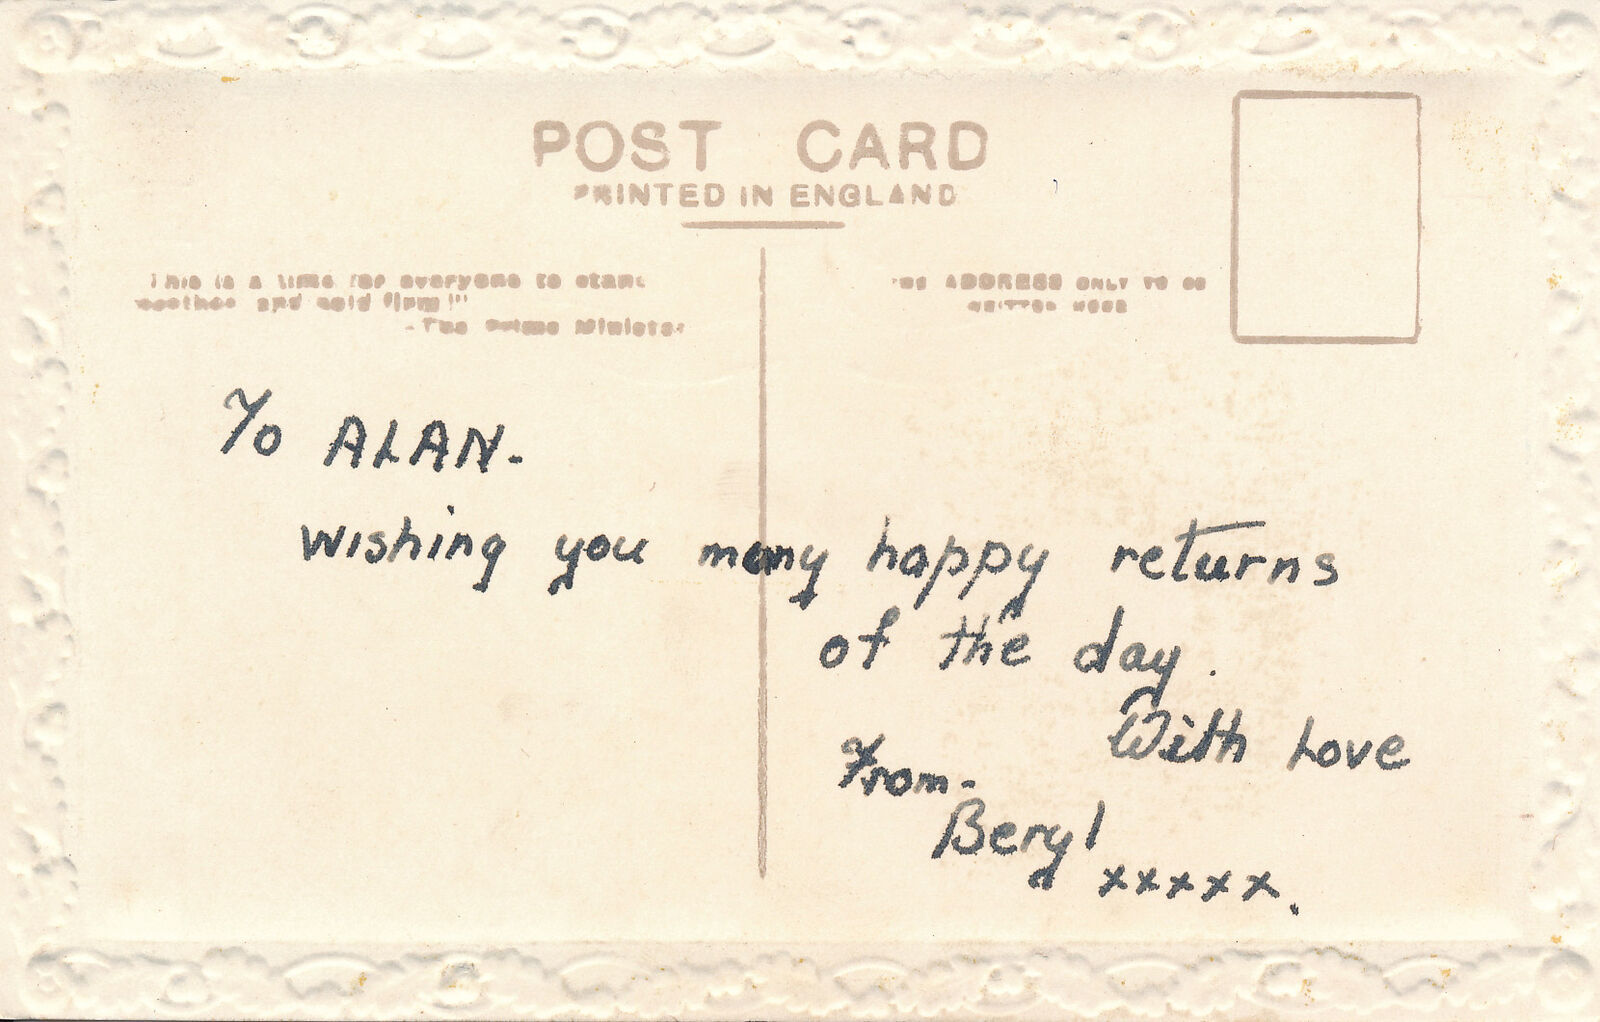 POST CARD
PRINTED IN ENGLAND
"This is a time for everyone to stand
together and hold firm!"
- The Prime Minister
THE ADDRESS ONLY TO BE
WRITTEN HERE
To ALAN-
wishing you many happy returns
of the day.
With Love
From-
Beryl
xxxxx.